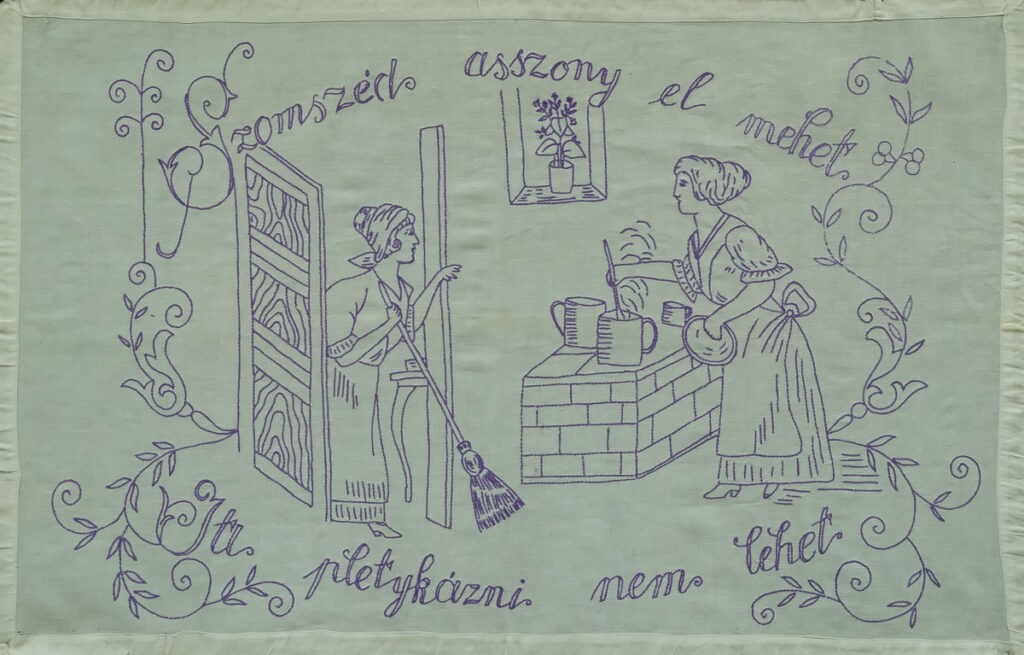 Szomszéd asszony el mehet
Itt pletykázni nem lehet